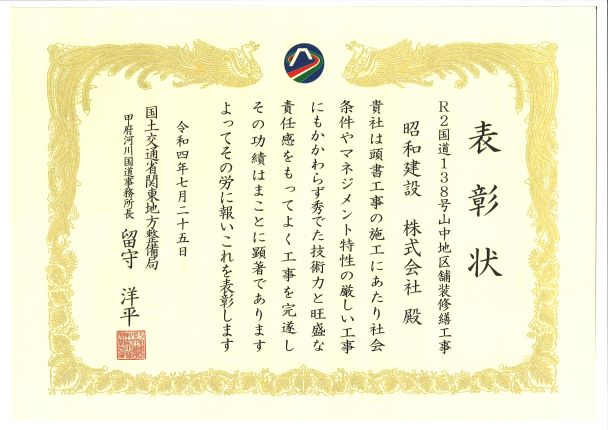 表彰状
R2国道138号山中地区舗装修繕工事
昭和建設 株式会社 殿
貴社は頭書工事の施工にあたり社会
条件やマネジメント特性の厳しい工事
にもかかわらず秀でた技術力と旺盛な
責任感をもってよく工事を完遂し
その功績はまことに顕著であります
よってその労に報いこれを表彰します
令和四年七月二十五日
国土交通省関東地方整備局
甲府河川国道事務所長 留守 洋平